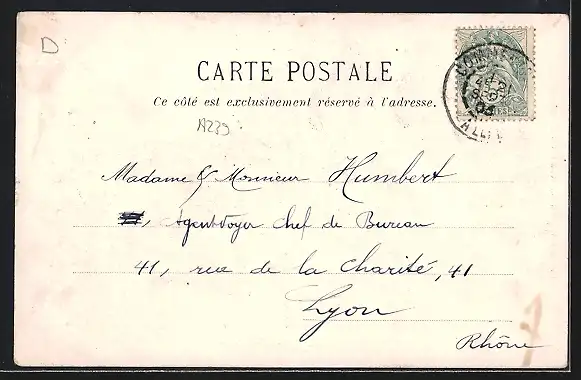 D
CARTE POSTALE
Ce côté est exclusivement réservé à l'adresse.
A239
Madame & Monsieur Humbert
Agent Voyer Chef de Bureau
41, rue de la Charité, 41
Lyon
Rhône